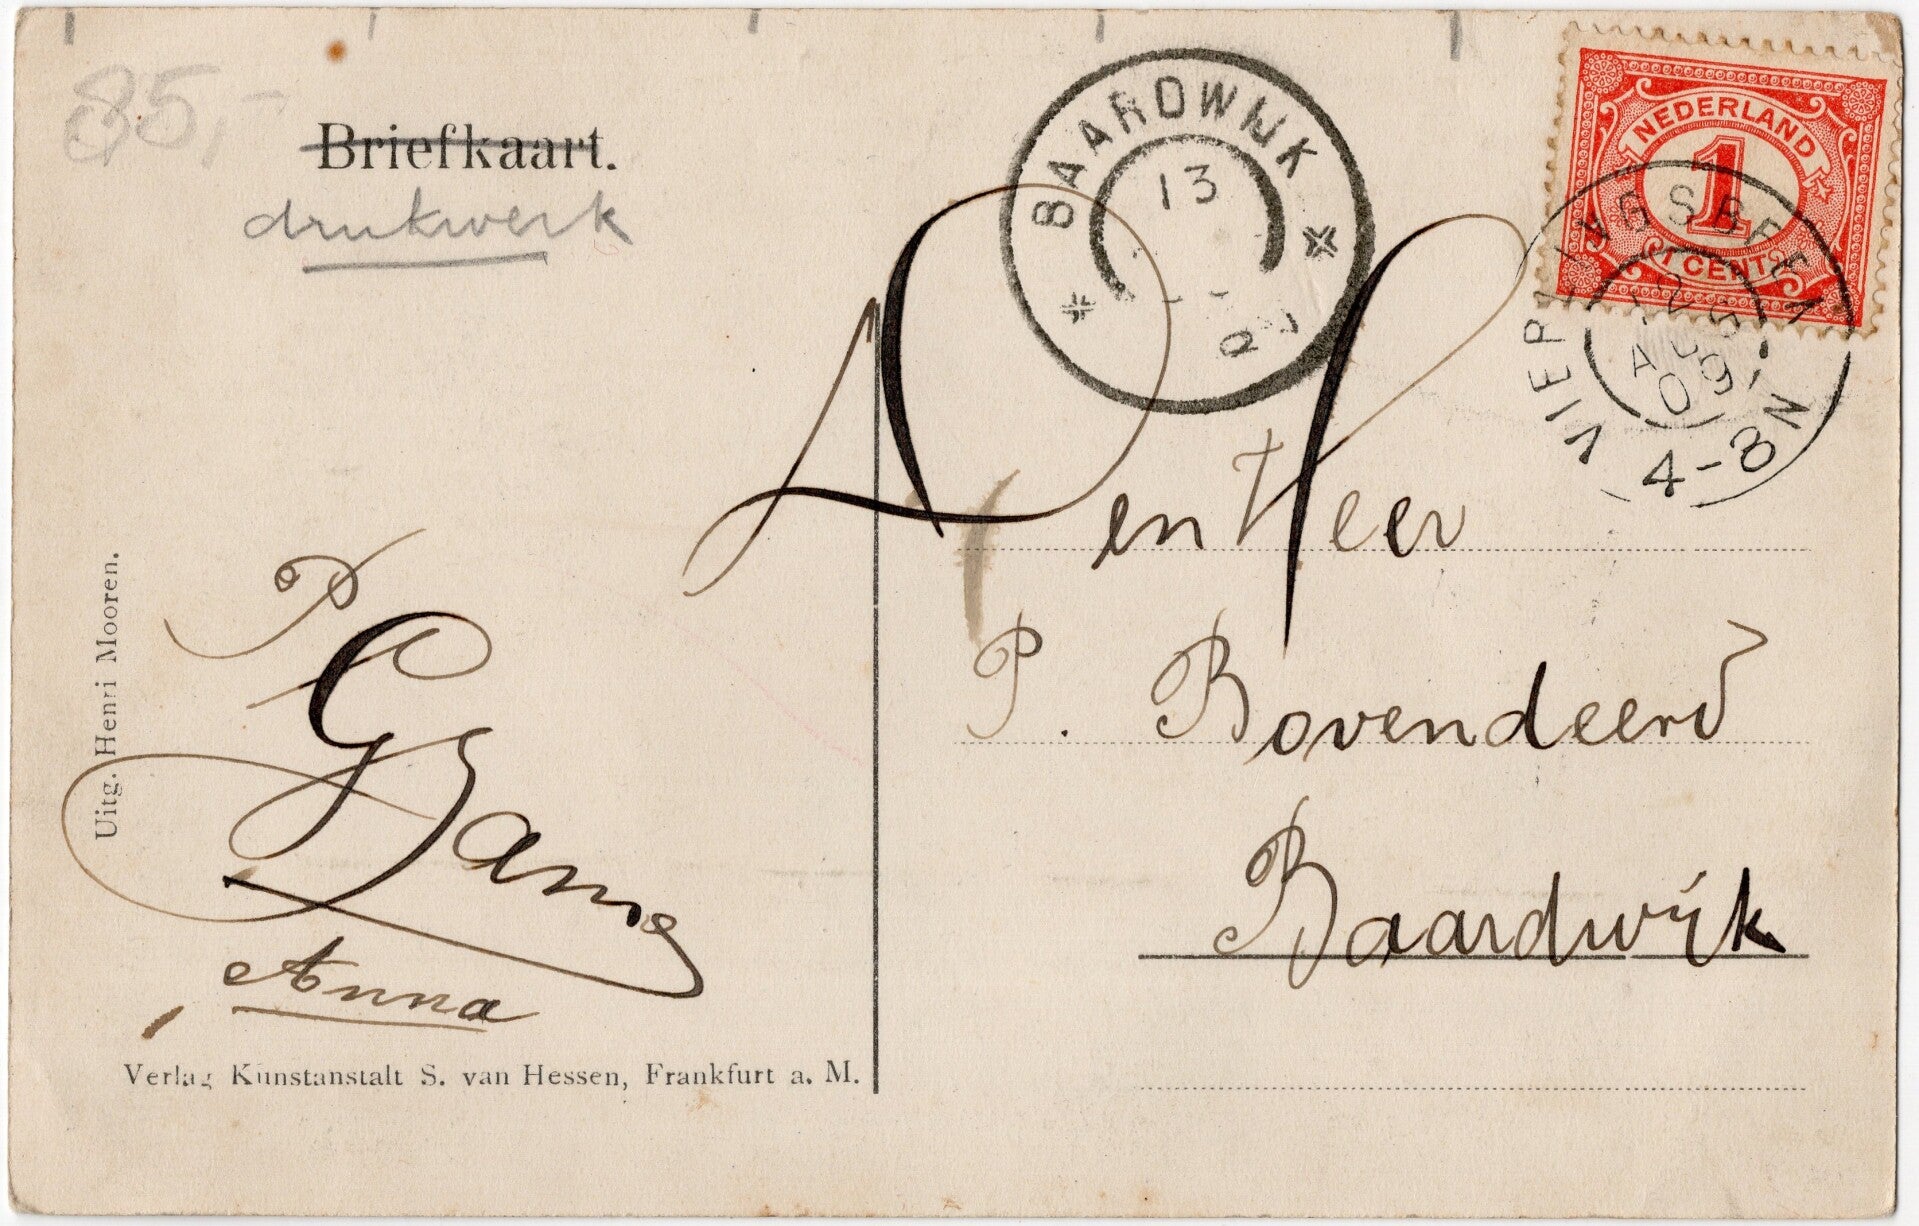 85,-
Briefkaart.
drukwerk
BAARDWIJK
13
NEDERLAND
1
1 CENT
VIERLINGSBEEK
12 5
AUG
09
4-8N
Den Heer
P. Bovendeerd
Baardwijk
P
Anna
Uitg. Henri Mooren.
Verlag Kunstanstalt S. van Hessen, Frankfurt a. M.